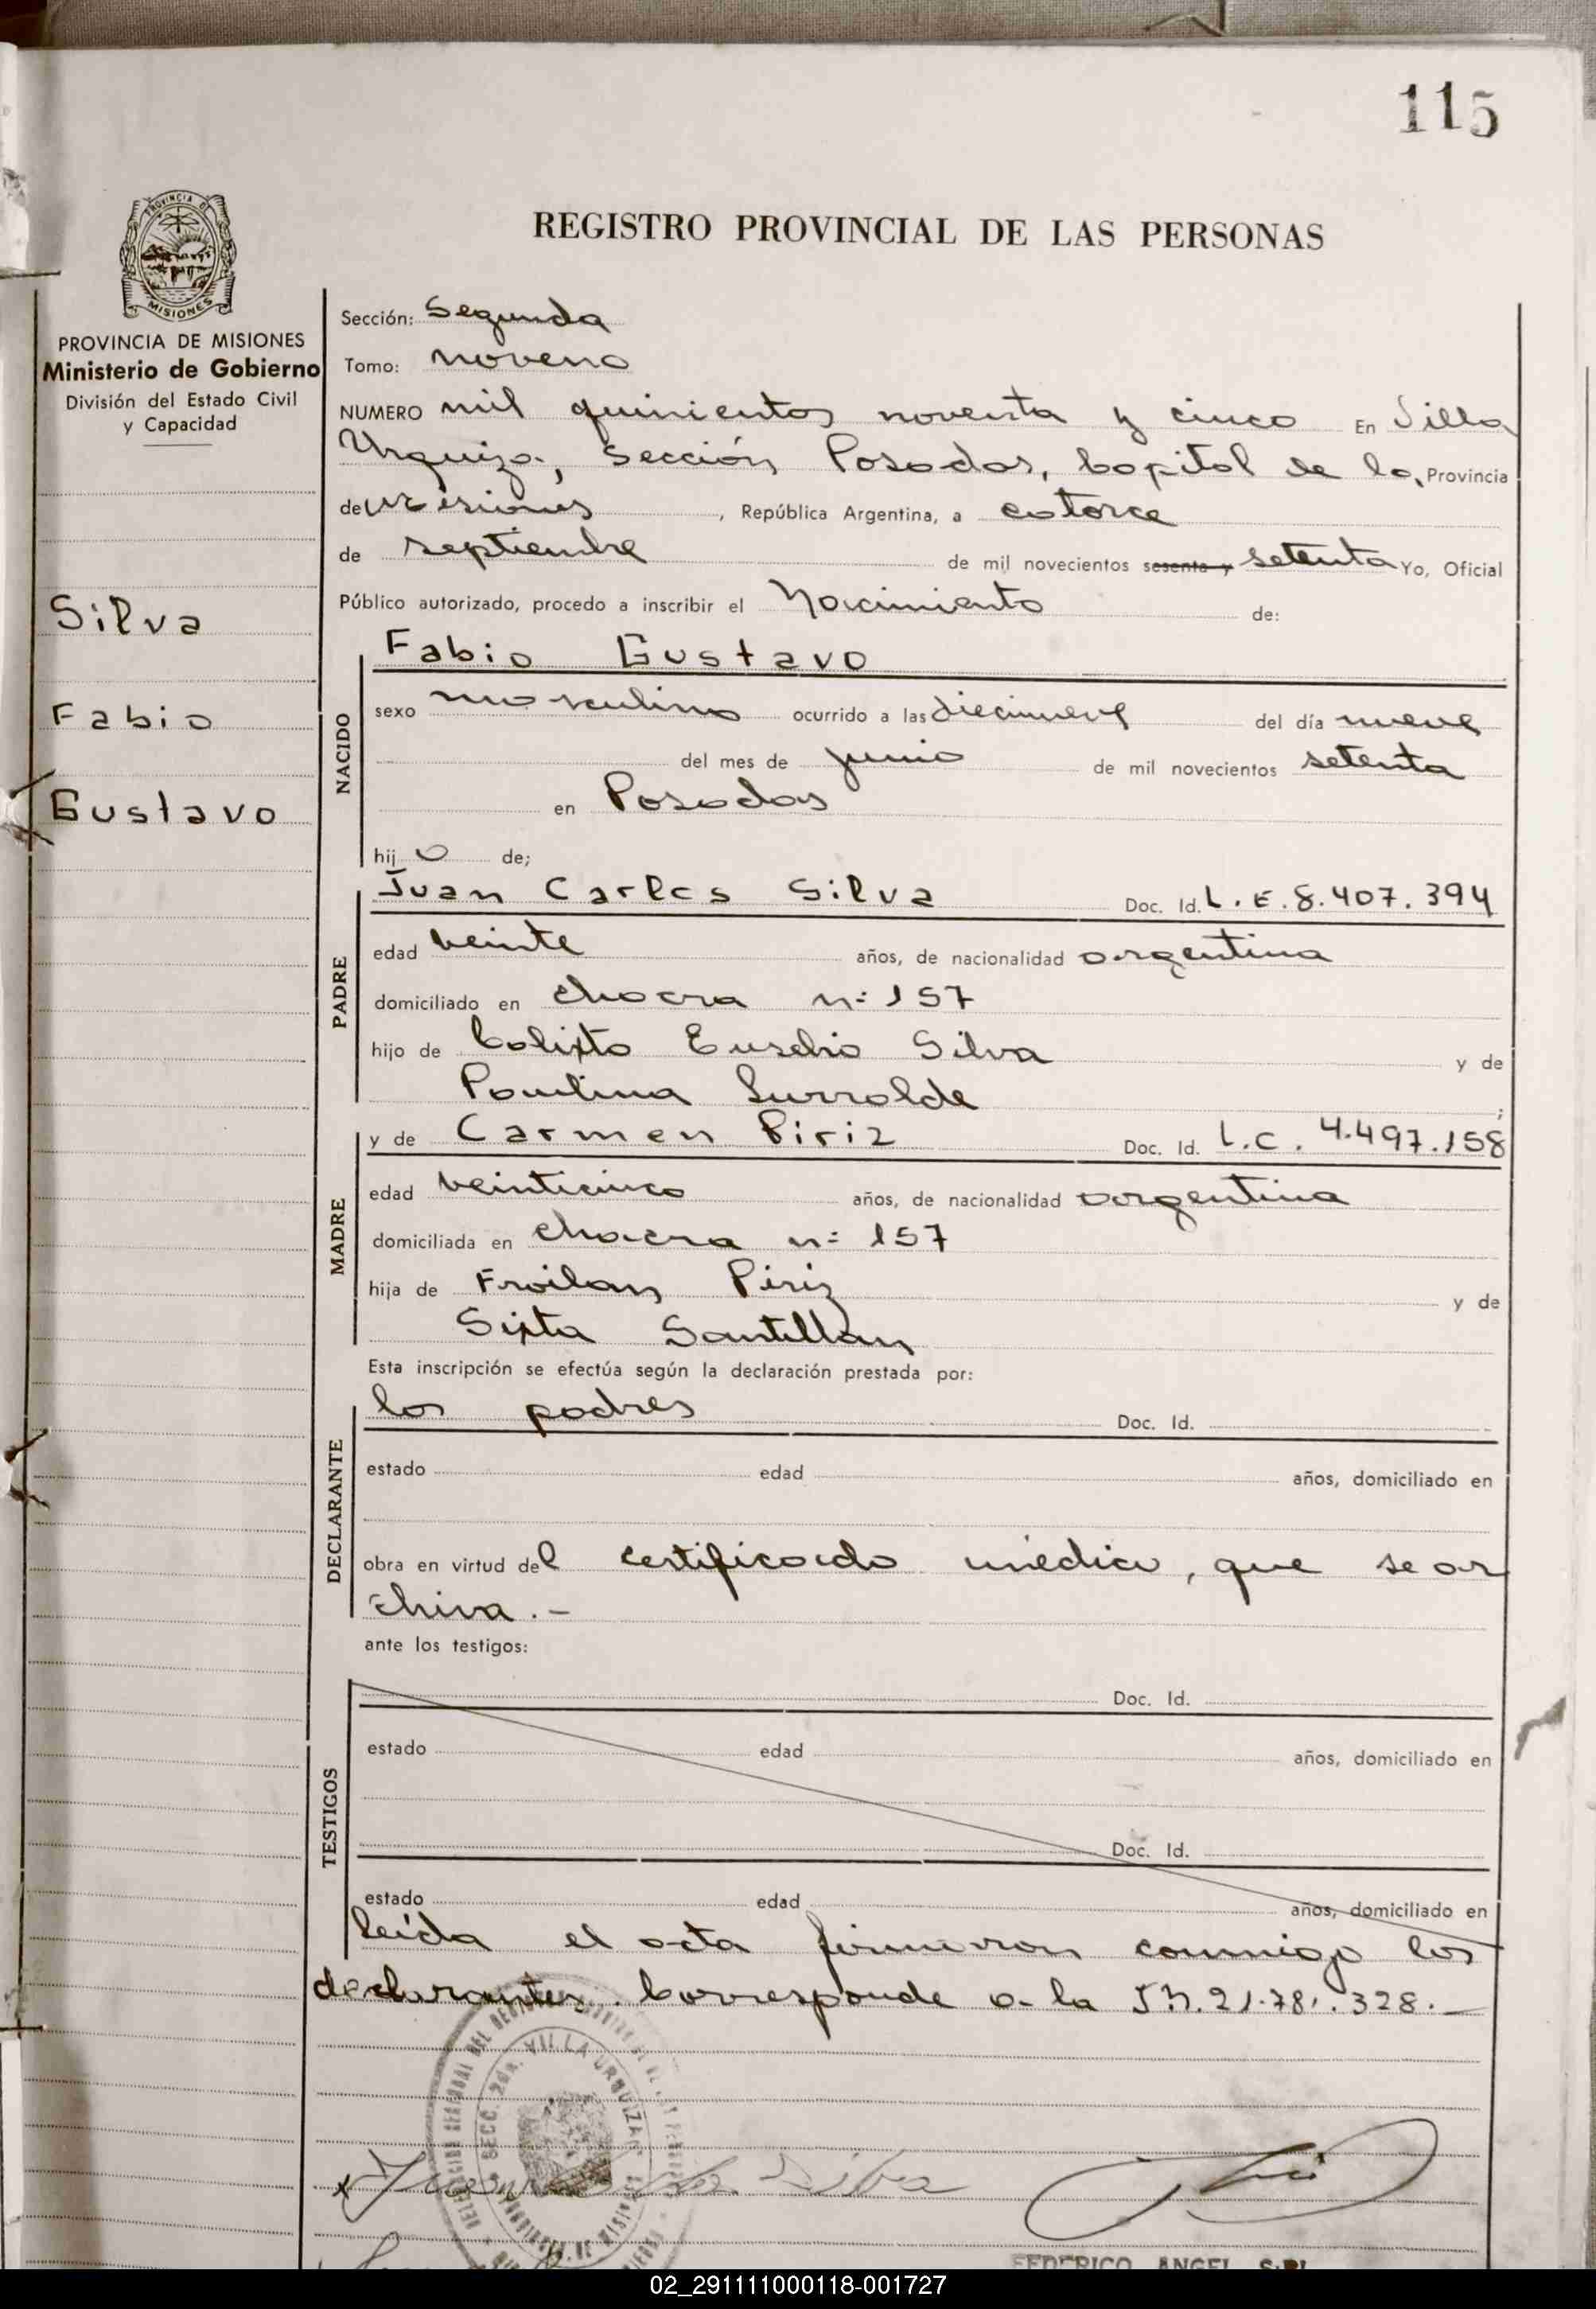 115
PROVINCIA DE MISIONES
Ministerio de Gobierno
División del Estado Civil
y Capacidad
Silva
Fabio
Gustavo
REGISTRO PROVINCIAL DE LAS PERSONAS
Sección: Segunda
Tomo: noveno
NUMERO mil quinientos noventa y cinco En Villa
Urquiza, Sección Posadas, Capital de la, Provincia
de Misiones, República Argentina, a catorce
de septiembre de mil novecientos sesenta y setenta Yo, Oficial
Público autorizado, procedo a inscribir el Nacimiento de:
NACIDO
Fabio Gustavo
sexo masculino ocurrido a las diecinueve del día nueve
del mes de junio de mil novecientos setenta
en Posadas
hijo de;
PADRE
Juan Carlos Silva Doc. Id. L.E. 8.407.394
edad veinte años, de nacionalidad argentina
domiciliado en chacra n: 157
hijo de Calixto Eusebio Silva y de
Paulina Lurralde;
MADRE
y de Carmen Piriz Doc. Id. L.C. 4.497.158
edad veinticinco años, de nacionalidad argentina
domiciliada en chacra n: 157
hija de Froilan Piriz y de
Sixta Santillan
Esta inscripción se efectúa según la declaración prestada por:
DECLARANTE
los padres Doc. Id.
estado edad años, domiciliado en
obra en virtud del certificado médico, que se ar
chiva.-
ante los testigos:
TESTIGOS
Doc. Id.
estado edad años, domiciliado en
Doc. Id.
estado edad años, domiciliado en
leída el acta firmaron conmigo los
declarantes. Corresponde a la 21.781.328.-
SECC. 2da. VILLA URQUIZA
Juan Silva
FEDERICO ANGEL
02_291111000118-001727